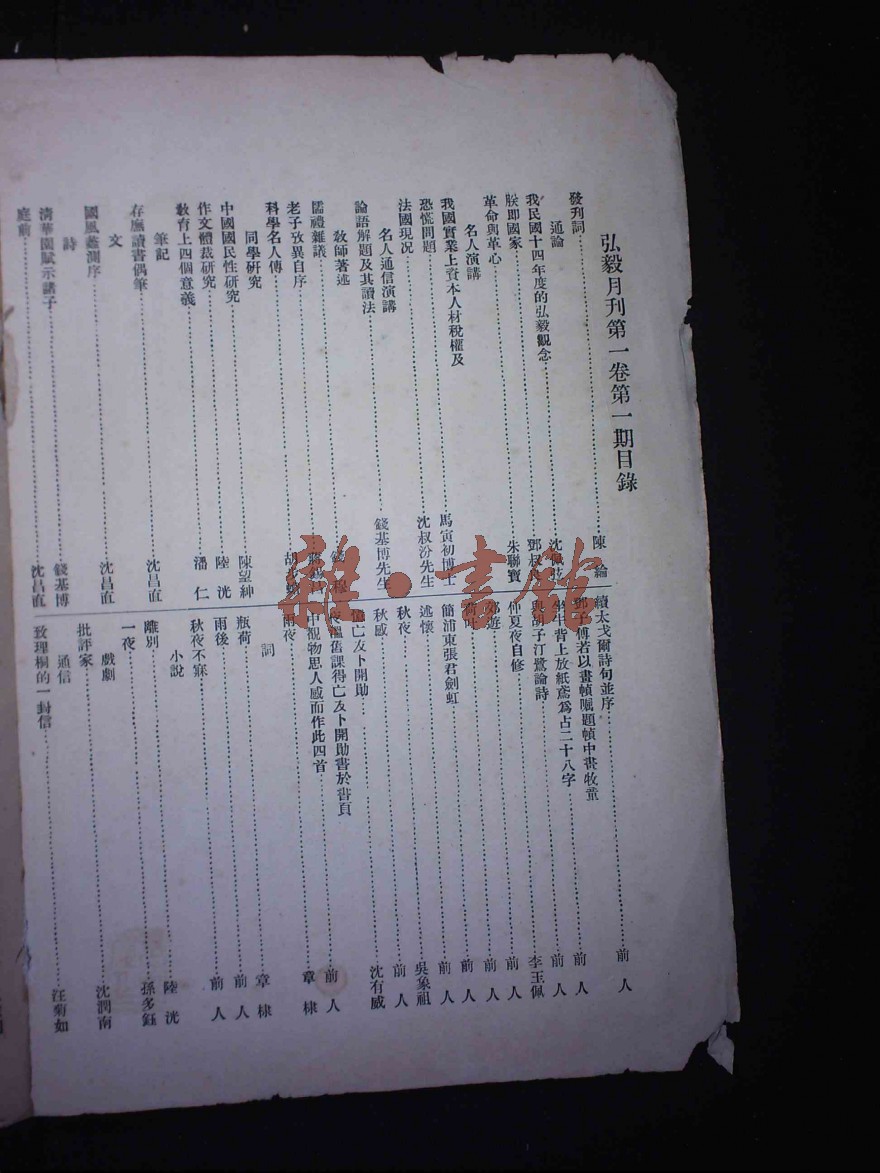 弘毅月刊第一卷第一期目錄
發刊詞 陳 綸
通論
我民國十四年度的弘毅觀念 沈佩
朕即國家 鄧叔
革命與革心 朱聯寶
名人演講
我國實業上資本人材稅權及
恐慌問題 馬寅初博士
法國現況 沈叔汾先生
名人通信演講
論語解題及其讀法 錢基博先生
教師著述
儒禮雜議 錢 穆
老子攷異自序 蔣錫昌
科學名人傳 胡
同學研究
中國國民性研究 陳望紳
作文體裁研究 陸 洸
教育上四個意義 潘 仁
筆記
存廡讀書偶筆 沈昌直
文
國風蠡測序 沈昌直
詩
清華園賦示諸子 錢基博
庭前 沈昌直
續太戈爾詩句並序 前 人
鄧子傅若以畫幀囑題幀中畫牧童
坐牛背上放紙鳶為占二十八字 前 人
與胡子汀鷺論詩 李玉佩
仲夏夜自修 前 人
遊 前 人
前 人
簡浦東張君劍虹 前 人
述懷 吳象祖
秋夜 前 人
秋感 沈有威
亡友卜開勛
溫舊課得亡友卜開勛書於書頁
中覩物思人感而作此四首 前 人
雨夜 章 棣
詞
瓶荷 章 棣
雨後 前 人
秋夜不寐 前 人
小說
離別 陸 洸
一夜 孫多鈺
戲劇
批評家 沈潤南
通信
致理桐的一封信 汪菊如
雜·書館